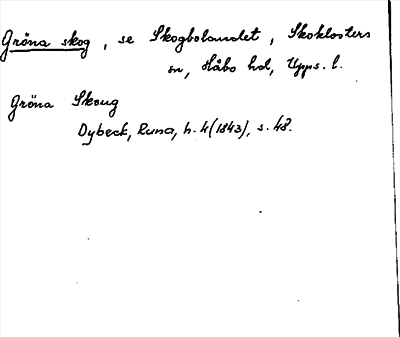 Gröna skog, se Skogbolandet, Skoklosters
sn, Håbo hd, Upps. l.
Gröna Skoug
Dybeck, Runa, h. 4 (1843), s. 48.